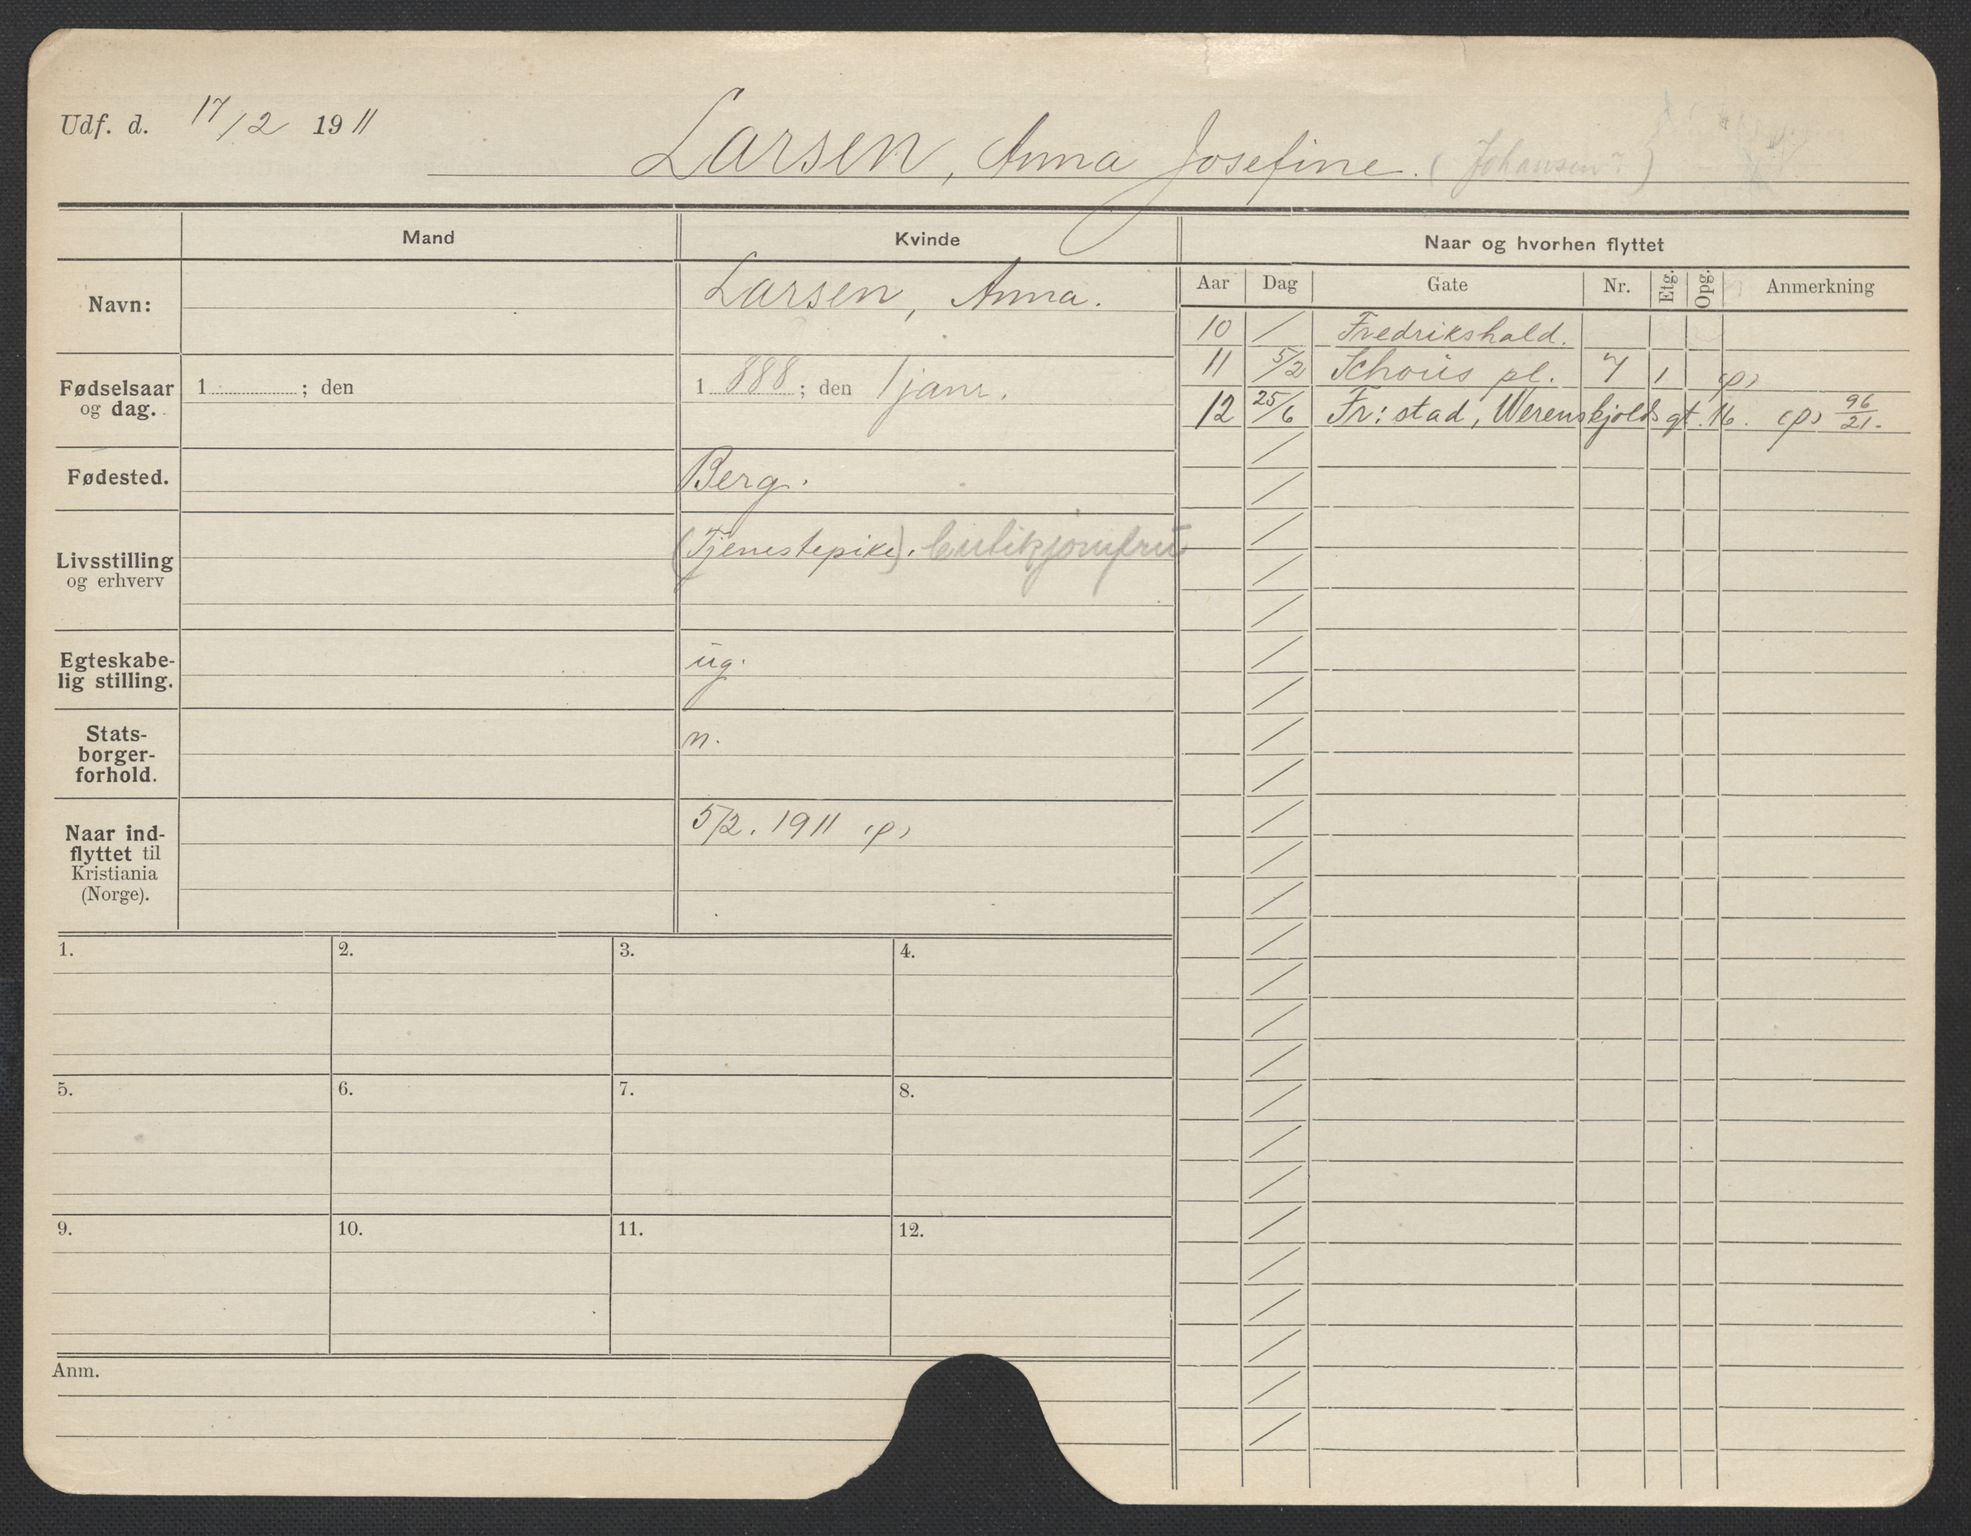 Udf. d. 17/2 1911
Larsen, Anna Josefine. (Johansen?)
Mand Kvinde Naar og hvorhen flyttet
Aar Dag Gate Nr. Etg. Opg. Anmerkning
Navn: Larsen, Anna.
10 / Fredrikshald.
11 5/2 Schous pl. 7 1 (p)
12 25/6 Fr:stad, Werenskjolds gt. 16. (p) 96/21.
Fødselsaar og dag. 1 ; den 1 888 ; den 1 janr.
Fødested. Berg.
Livsstilling og erhverv (Tjenestepike). Butikjomfru
Egteskabe-
lig stilling. ug.
Stats-
borger-
forhold. n.
Naar ind-
flyttet til
Kristiania
(Norge). 5/2. 1911 (p)
1. 2. 3. 4.
5. 6. 7. 8.
9. 10. 11. 12.
Anm.